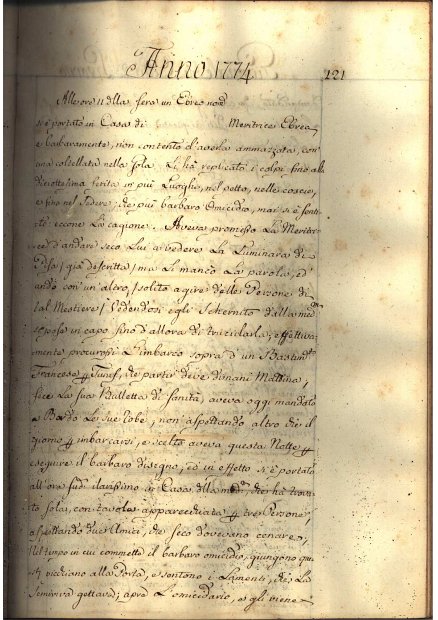 Anno 1774
121
Alle ore 11 della sera un Ebreo nom
si è portato in Casa di Meritrice Ebrea,
e barbaramente, non contento d'averla ammazzata, con
una coltellata nella Gola, Li ha replicato i colpi fino alla
diciottesima ferita in più Luoghi, nel petto, nelle coscie,
e fino nel Sedere; che più barbaro Omicidio, mai si è senti-
to: eccone La cagione. Aveva promesso La Meritri-
ce d'andare seco Lui a vedere La Luminara di
Pisa, già descritta, ma Li mancò La parola, ed
andò con un'altro, solito agire delle Persone di
tal Mestiere, Vedendosi egli Schernito dalla
pose in capo fino d'allora di trucidarla; effettiva-
mente procurossi L'Imbarco sopra d'un
Francese p Tunis, che partir deve dimani Mattina,
fece La sua Bulletta di Sanità, aveva oggi mandato
a Bordo Le sue robe, non aspettando altro che il
giorno p imbarcarsi, e scelta aveva questa Notte p
eseguire il barbaro disegno, ed in effetto si è portato
all'ora in Casa della che ha trova-
ta sola, con tavola apparecchiata p tre Persone,
aspettando due Amici, che seco dovevano cenare.
Nel tempo in cui commette il barbaro omicidio, giungono
alla Porta, e sentono i Lamenti, che La
Semiviva gettava; apre L'omicidario, e gli viene